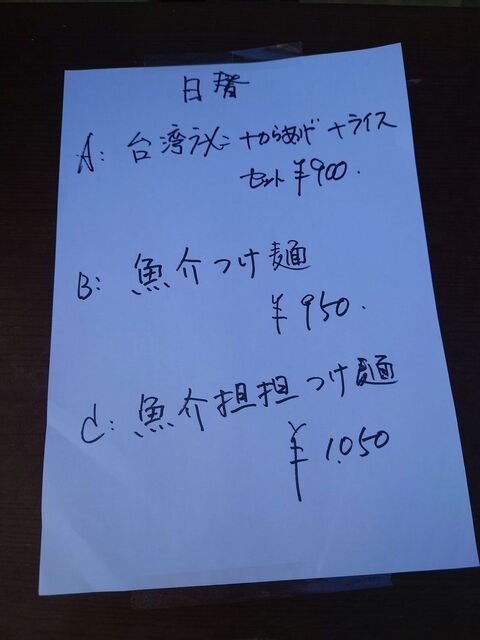 日替
A: 台湾ラメン+からあげ+ライス
セット ¥900.
B: 魚介つけ麺
¥950.
C: 魚介担担つけ麺
¥1.050